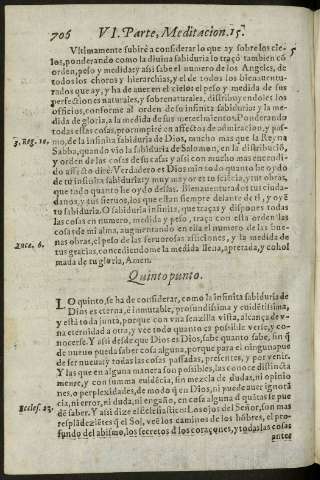 706 VI. Parte, Meditacion. 15.
Vltimamente subirè a considerar lo que ay sobre los cielos, ponderando como la diuina sabiduria lo traçò tambien cõ
orden, peso y medida: y assi sabe el numero de los Angeles, de
todos los choros y hierarchias, y el de todos los bienauenturados que ay, y ha de auer en el cielo: el peso y medida de sus
perfectiones naturales, y sobrenaturales, distribuyendoles los
officios, conforme al orden de su infinita sabiduria y la medida de gloria, a la medida de sus merecimientos. Ponderando
3. Reg. 10.
todas estas cosas, prorrumpirè en affectos de admiracion, y pasmo, de la infinita sabiduria de Dios, mucho mas que la Reyna
Sabba, quando vio la sabiduria de Salomon, en la distribuciõ,
y orden de las cosas de su casa: y assi con mucho mas encendido affecto dirè. Verdadero es Dios mio todo quanto he oydo
de tu infinita sabiduria: y muy mayor es tu sciẽcia, y tus obras,
que todo quanto he oydo dellas. Bienauenturados tus ciudadanos, y tus sieruos, los que estan siempre delante de ti, y oyẽ
tu sabiduria. O sabiduria infinita, que traças y dispones todas
las cosas en numero, medida y peso, traça con esta orden las
cosas de mi alma, augmentando en ella el numero de las buenas obras, el peso de las feruorosas afficiones, y la medida de
Luce. 6.
tus gracias, concediendome la medida llena, apretada, y colmada de tu gloria, Amen.
Quinto punto.
LO quinto, se ha de considerar, como la infinita sabiduria de
Dios es eterna, è inmutable, profundissima y euidẽtissima,
y està toda junta, porque con vna senzilla vista, alcança de vna eternidad a otra, y vee todo quanto es possible verse, y conocerse. Y assi desde que Dios es Dios, sabe quanto sabe, sin q̃
de nueuo pueda saber cosa alguna, porque para el ninguna puede ser nueua: y todas las cosas passadas, presentes, y por venir.
Y las que en alguna manera son possibles, las conoce distinctamente, y con summa euidẽcia, sin mezcla de dudas, ni opiniones, o perplexidades, de modo q̃ en Dios, ni puede auer ignorãcia, ni error, ni duda, ni engaño, en cosa alguna de quãtas se puedẽ saber. Y assi dize el Ecclesiastico: Los ojos del Señor, son mas
Ecclesi. 23.
resplãdeziẽtes q̃ el Sol, veẽ los caminos de los hõbres, el profundo del abismo, los secretos d los coraçones, y todas las cosas
antes